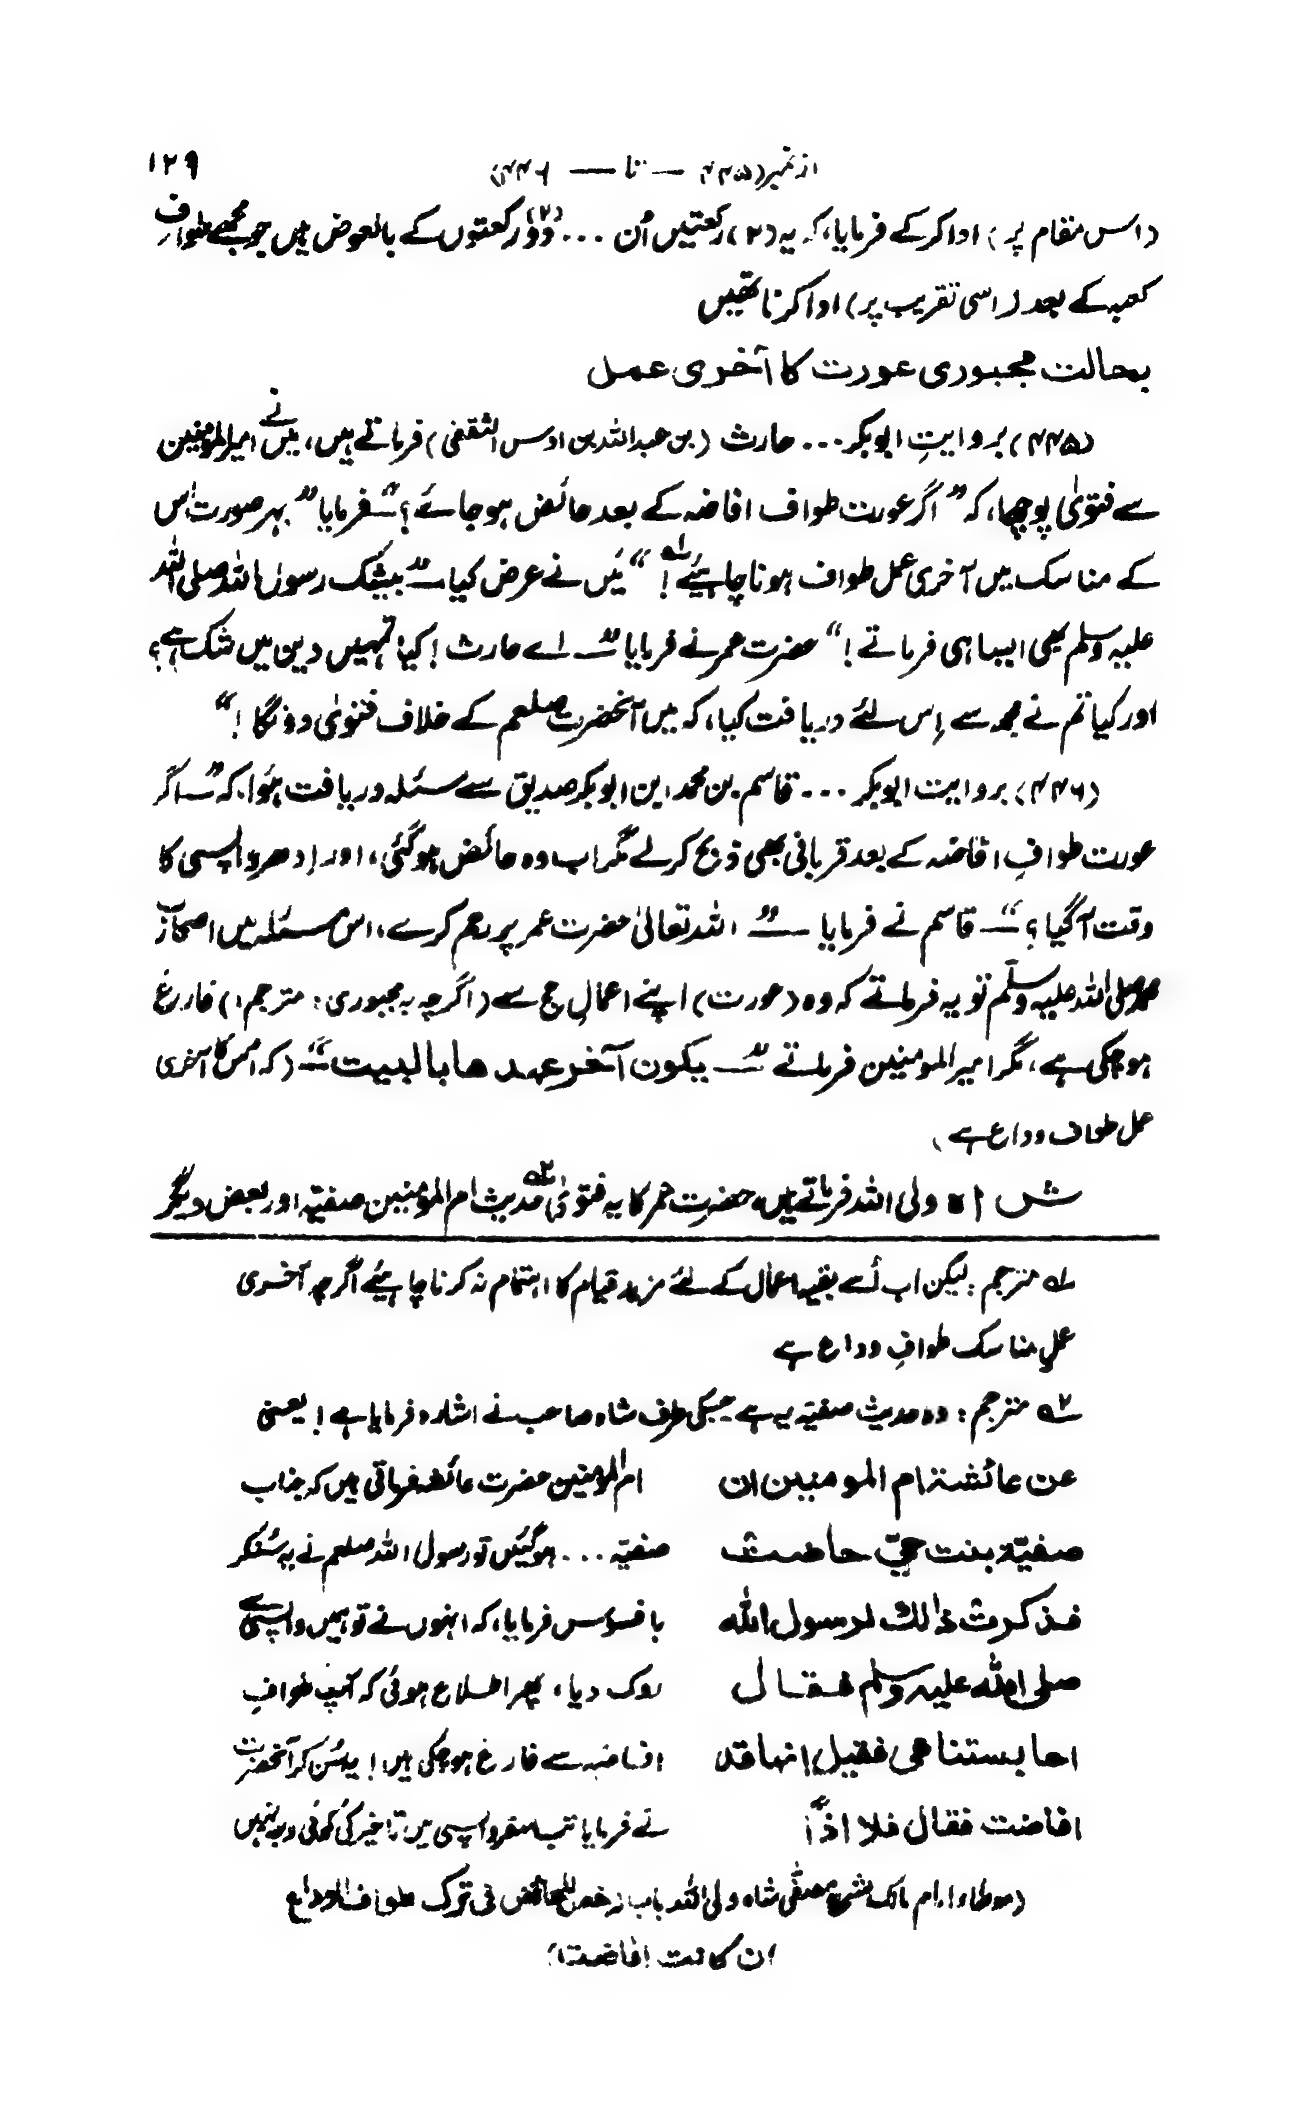 از نمبر(۴۴۵ — تا — ۴۴۶) ۱۲۹
(اس مقام پر) ادا کر کے فرمایا، کہ یہ (۲) رکعتیں اُن ... دو (۲) رکعتوں کے بالعوض ہیں جو مجھے طوافِ
کعبہ کے بعد (اسی تقریب پر) ادا کرنا تھیں
بحالت مجبوری عورت کا آخری عمل
(۴۴۵) بروایتِ ابوبکر... حارث (بن عبداللہ بن اوس الثقفی) فرماتے ہیں، میں نے امیرالمؤمنین
سے فتویٰ پوچھا، کہ ”اگر عورت طواف افاضہ کے بعد حائض ہو جائے؟“ فرمایا ”بہر صورت اُس
کے مناسک میں آخری عمل طواف ہونا چاہیئے ۱؎!“ میں نے عرض کیا — ”بیشک رسول اللہ صلی اللہ
علیہ وسلم بھی ایسا ہی فرماتے!“ حضرت عمر نے فرمایا — ”اے حارث! کیا تمہیں دین میں شک ہے؟
اور کیا تم نے مجھ سے اِس لئے دریافت کیا، کہ میں آنحضرت صلعم کے خلاف فتویٰ دونگا!“
(۴۴۶) بروایت ابوبکر... قاسم بن محمد ابن ابوبکر صدیق سے مسئلہ دریافت ہُوا، کہ ”اگر
عورت طوافِ افاضہ کے بعد قربانی بھی ذبح کر لے مگر اب وہ حائض ہو گئی، اور اِدھر واپسی کا
وقت آ گیا؟“ — قاسم نے فرمایا — ”اللہ تعالیٰ حضرت عمر پر رحم کرے، اس مسئلہ میں اصحاب
محمد صلی اللہ علیہ وسلم تو یہ فرماتے کہ وہ (عورت) اپنے اعمالِ حج سے (اگرچہ بہ مجبوری: مترجم) فارغ
ہو چکی ہے، مگر امیرالمومنین فرماتے — ”یکون آخر عہدھا بالبیت“ — (کہ اس کا آخری
عمل طواف وداع ہے)
ش ۱۵ ولی اللہ فرماتے ہیں، حضرت عمر کا یہ فتویٰ ۲؎ حدیث ام المومنین صفیّہ اور بعض دیگر
۱؎ مترجم: لیکن اب اُسے بقیہ اعمال کے لئے مزید قیام کا اہتمام نہ کرنا چاہیئے اگرچہ آخری
عملِ مناسک طوافِ وداع ہے
۲؎ مترجم: وہ حدیث صفیّہ یہ ہے جسکی طرف شاہ صاحب نے اشارہ فرمایا ہے! یعنی
عن عائشۃ ام المومنین ان ام المؤمنین حضرت عائشہ فرماتی ہیں کہ جناب
صفیّۃ بنت حیّ حاضت صفیّہ ... ہو گئیں تو رسول اللہ صلعم نے یہ سُنکر
فذکرت ذالک لرسول اللہ بافسوس فرمایا، کہ انہوں نے تو ہمیں واپسی سے
صلی اللہ علیہ وسلم فقال روک دیا، پھر اطلاع ہوئی کہ آپ طوافِ
احابستنا ھی فقیل انہا قد افاضہ سے فارغ ہو چکی ہیں! یہ سُن کر آنحضرت
افاضت فقال فلا اذًا نے فرمایا تب سفر واپسی میں تاخیر کی کوئی وجہ نہیں
(موطا امام مالک بشرح مصفّٰی شاہ ولی اللہ باب رخص للحائض فی ترک طواف الوداع
ان کانت افاضت)